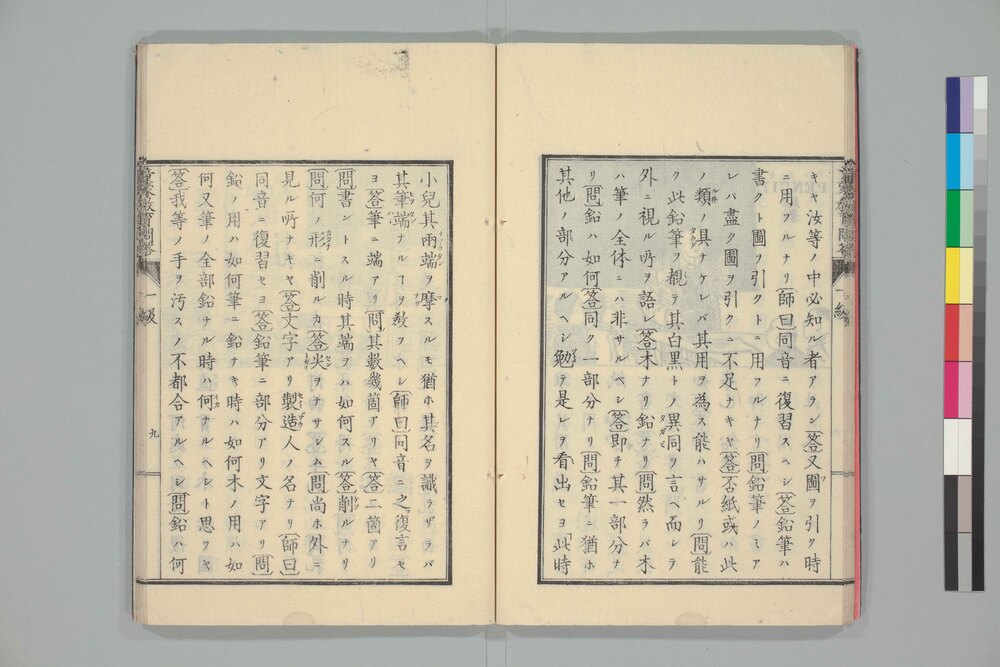 キヤ汝等ノ中必知ル者アラン答又圖ヲ引ク時
ニ用フルナリ師曰同音ニ復習スヘシ答鉛筆ハ
書クト圖ヲ引クトニ用フルナリ問鉛筆ノミア
レバ盡ク圖ヲ引クニ不足ナキヤ答否紙或ハ此
ノ類ノ具ナケレバ其用ヲ為ス能ハサルリ問能
ク此鉛筆ヲ覩テ其白黒トノ異同ヲ言ヘ而シテ
外ニ視ル所ヲ語レ答木ナリ鉛ナリ問然ラバ木
ハ筆ノ全体ニハ非サルベシ答即チ其一部分ナ
リ問鉛ハ如何答同ク一部分ナリ問鉛筆ニ猶ホ
其他ノ部分アルヘシ勉テ是レヲ看出セヨ此時
小兒其兩端ヲ摩スルモ猶ホ其名ヲ識ラザラバ
其筆端ナルヿヲ教フヘシ師曰同音ニ之復言セ
ヨ答筆ニ端アリ問其數幾箇アリヤ答二箇アリ
問書ントスル時其端ヲハ如何スル答削ルナリ
問何ノ形ニ削ルカ答尖ヲナサシム問尚ホ外ニ
見ル所ナキヤ答文字アリ製造人ノ名ナリ師曰
同音ニ復習セヨ答鉛筆ニ部分アリ文字アリ問
鉛ノ用ハ如何筆ニ鉛ナキ時ハ如何木ノ用ハ如
何又筆ノ全部鉛ナル時ハ何ナルヘシト思フヤ
答我等ノ手ヲ汚スノ不都合アルヘシ問鉛ハ何
一級
九